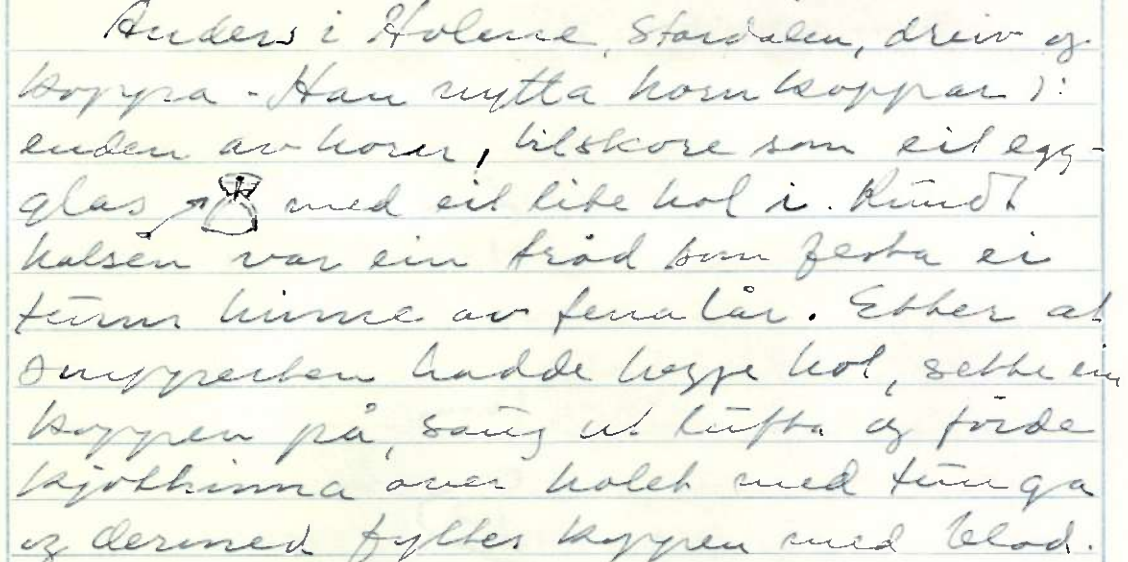 Anders i Holene, Stardalen, dreiv og
koppa - Han nytta hornkoppar ):
enden av horn, tilskore som eit egg-
glas med eit lite hol i. Rundt
halsen var ein tråd som festa ei
tunn hinne av fenalår. Etter at
snypperten hadde hogge hol, sette ein
koppen på, saug ut lufta og förde
kjøtthinna över holet med tunga
og dermed fylltes koppen med blod.